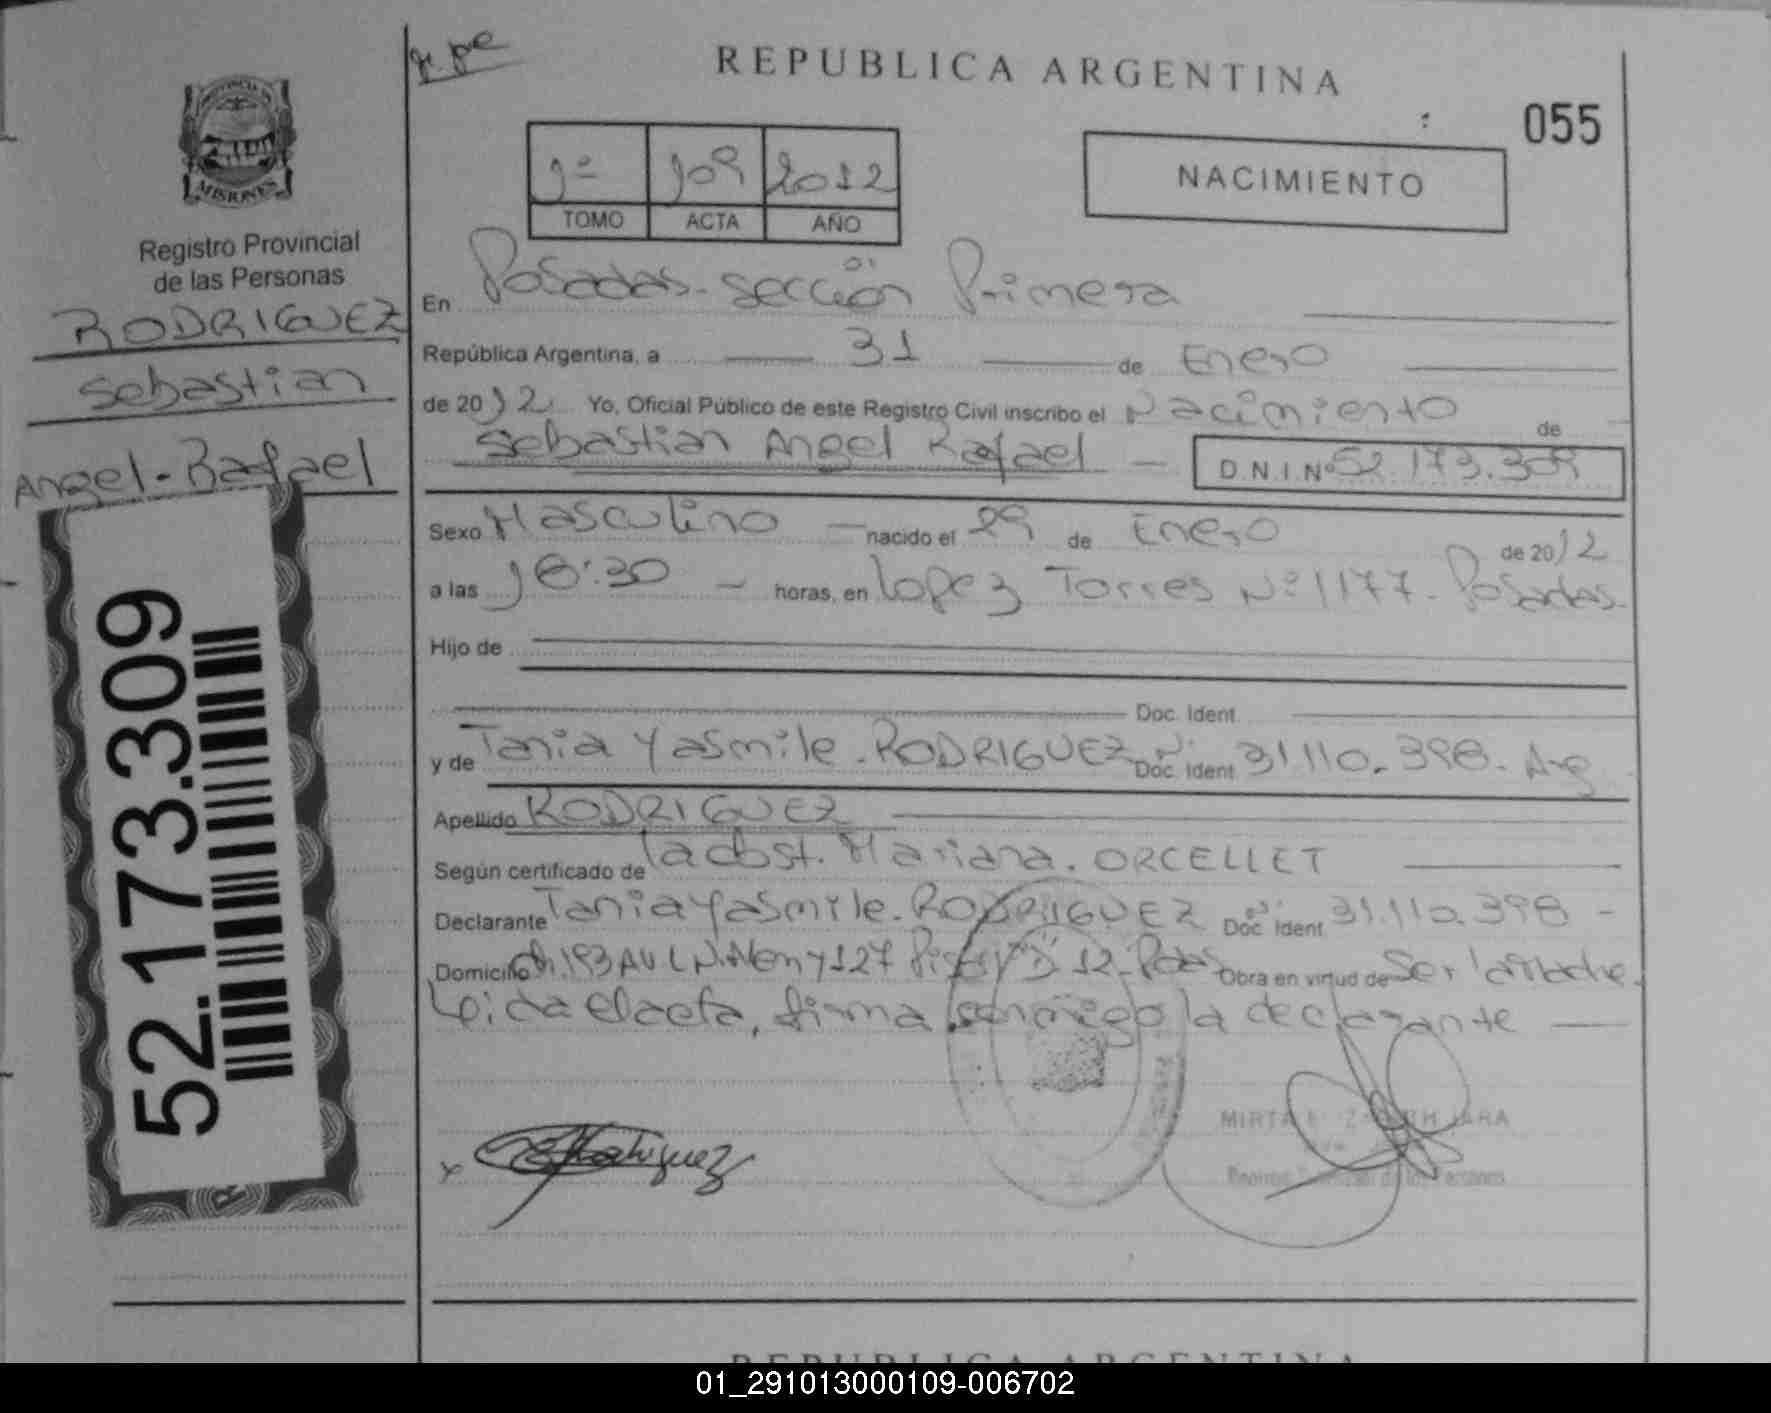 REPUBLICA ARGENTINA
055
PROVINCIA DE MISIONES
Registro Provincial
de las Personas
RODRIGUEZ
Sebastian
Angel-Rafael
52.173.309
1º 109 2012
TOMO ACTA AÑO
NACIMIENTO
En Posadas-Sección Primera
República Argentina, a 31 de Enero
de 2012 Yo, Oficial Público de este Registro Civil inscribo el Nacimiento de
Sebastian Angel Rafael D.N.I.Nº 52.173.309
Sexo Masculino nacido el 29 de Enero de 2012
a las 18:30 horas, en Lopez Torres Nº 1177-Posadas.
Hijo de
Doc. Ident.
y de Tania Yasmile. RODRIGUEZ Doc. Ident. Nº 31.110.398. Arg
Apellido RODRIGUEZ
Según certificado de la obst. Mariana. ORCELLET
Declarante Tania Yasmile. RODRIGUEZ Doc. Ident. Nº 31.110.398 -
Domicilio Ch.193 Av L.N.Alem y 127 12- Pdas Obra en virtud de Ser la Madre.
Leida el acta, firma conmigo la declarante
MIRTA JARA
Registro Provincial de las Personas
Rodriguez
REPUBLICA ARGENTINA
01_291013000109-006702